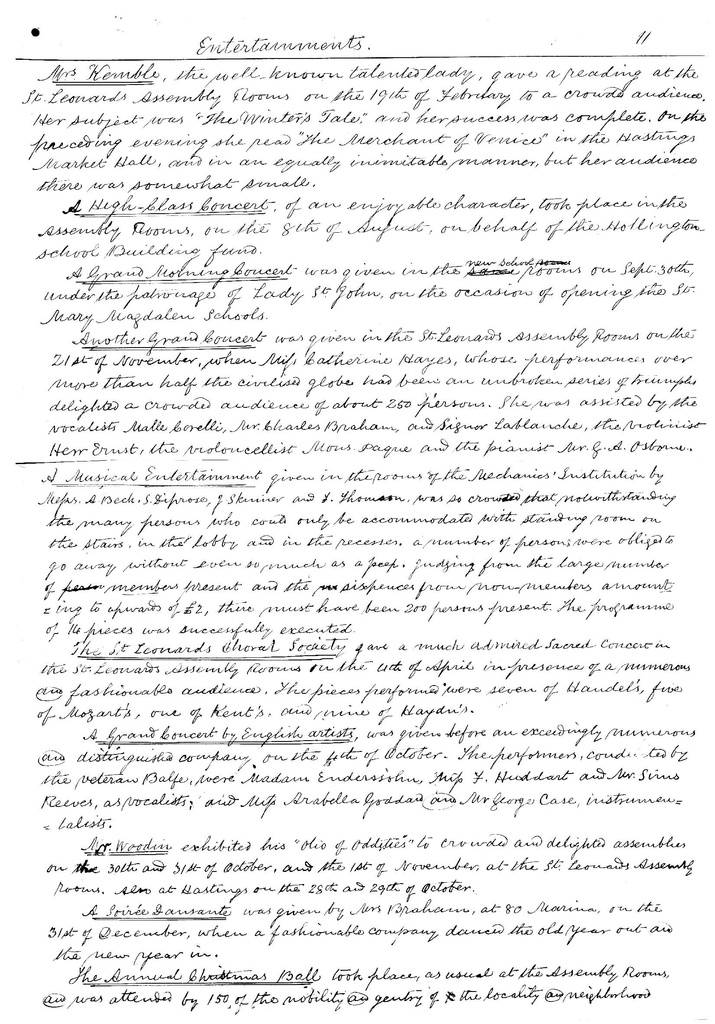 Entertainments. 11
Mrs Kemble, the well-known talented lady, gave a reading at the
St. Leonards Assembly Rooms on the 19th of February to a crowded audience.
Her subject was "The Winter's Tale," and her success was complete. On the
preceding evening she read "The Merchant of Venice" in the Hastings
Market Hall, and in an equally inimitable manner, but her audience
there was somewhat small.
A High-Class Concert, of an enjoyable character, took place in the
Assembly Rooms, on the 8th of August, on behalf of the Hollington-
school Building fund.
new school room
A Grand Morning Concert was given in the rooms on Sept. 30th,
under the patronage of Lady St John, on the occasion of opening the St.
Mary Magdalen Schools.
Another Grand Concert was given in the St Leonards Assembly Rooms on the
21st of November, when Miss Catherine Hayes, whose performances over
more than half the civilised globe had been an unbroken series of triumphs
delighted a crowded audience of about 250 persons. She was assisted by the
vocalists Malle Corelli, Mr. Charles Braham, and Signor Lablanche, the violinist
Herr Ernst, the violoncellist Mons. Paque and the pianist Mr. G. A. Osborne.
A Musical Entertainment given in the rooms of the Mechanics' Institution by
Messrs. A Beck, S. Diprose, J Skinner and F. Thomson, was so crowded that notwithstanding
the many persons who could only be accommodated with standing room on
the stairs, in the lobby and in the recesses, a number of persons were obliged to
go away without even so much as a peep. Judging from the large number
of members present and the sixpences from non-members amount
=ing to upwards of £2, there must have been 200 persons present. The programme
of 14 pieces was successfully executed.
The St Leonards Choral Society gave a much admired Sacred Concert in
the St. Leonards Assembly Rooms on the of April in presence of a numerous
and fashionable audience. The pieces performed were seven of Handel's, five
of Mozart's, one of Kent's, and nine of Haydn's.
A Grand Concert by English artists, was given before an exceedingly numerous
and distinguished company, on the of October. The performers, conducted by
the veteran Balfe, were Madam Enderssohn, Miss F. Huddart and Mr. Sims
Reeves, as vocalists; and Miss Arabella Goddard and Mr George Case, instrumen=
=talists.
Mr. Woodin exhibited his "Olio of Oddities" to crowded and delighted assemblies
on the 30th and 31st of October, and the 1st of November, at the St. Leonards Assembly
Rooms. Also at Hastings on the 28th and 29th of October.
A Soirée Dansante was given by Mrs Braham, at 80 Marina, on the
31st of December, when a fashionable company danced the old year out and
the new year in.
The Annual Christmas Ball took place, as usual at the Assembly Rooms,
and was attended by 150 of the nobility and gentry of the locality and neighborhood